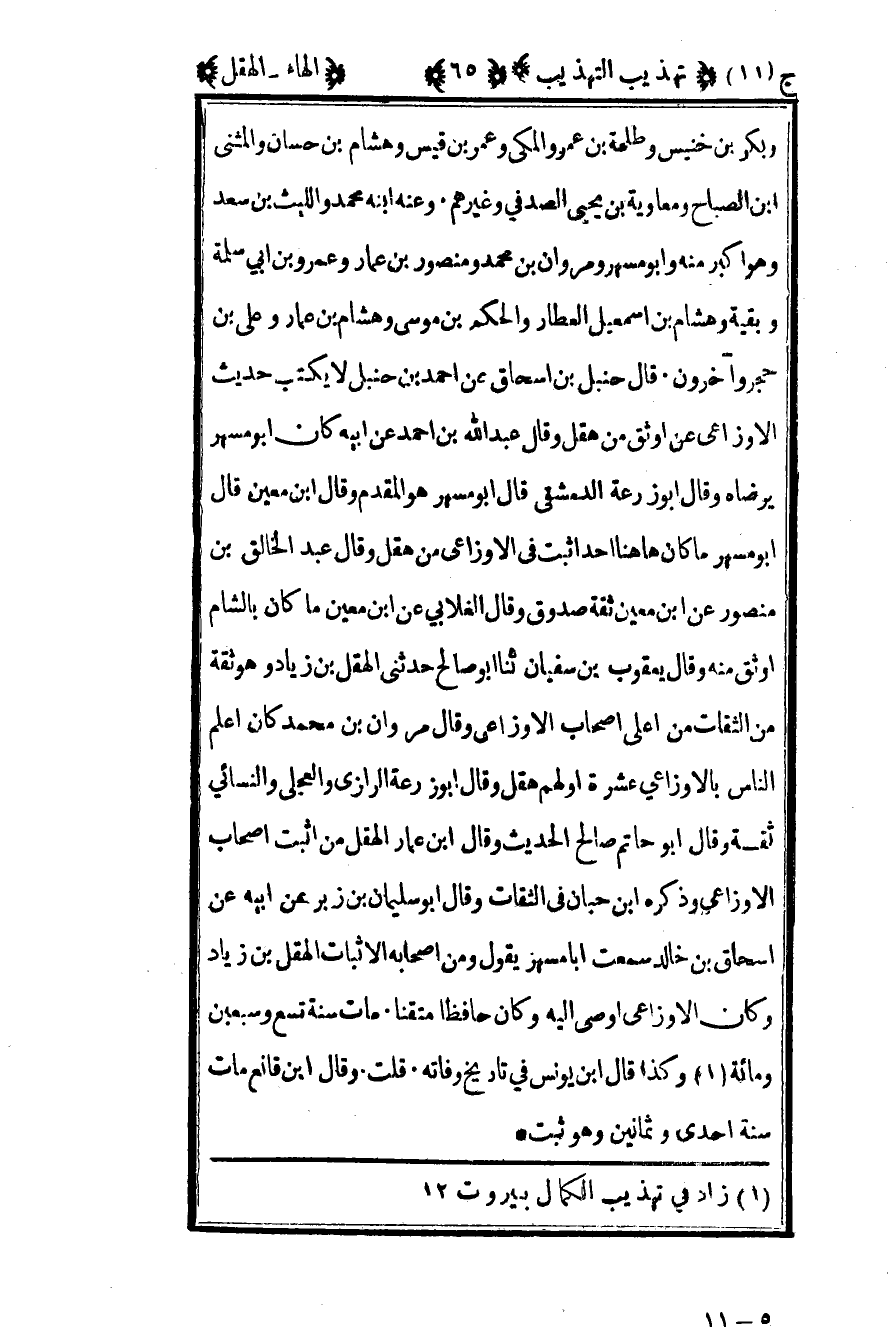 ج (١١) ﴿ تهذيب التهذيب ﴾ ﴿ ٦٥ ﴾ ﴿ الهاء ـ الهقل ﴾
وبكر بن خنيس وطلحة بن عمرو المكى وعمر بن قيس وهشام بن حسان والمثنى
ابن الصباح ومعاوية بن يحيى الصدفي وغيرهم ٠ وعنه ابنه محمد والليث بن سعد
وهو اكبر منه وابو مسهر ومروان بن محمد ومنصور بن عمار وعمرو بن ابي سلمة
و بقية وهشام بن اسمعيل العطار والحكم بن موسى وهشام بن عمار و على بن
حجر وآخرون ٠ قال حنبل بن اسحاق عن احمد بن حنبل لا يكتب حديث
الاوزاعى عن اوثق من هقل وقال عبد الله بن احمد عن ابيه كان ابو مسهر
يرضاه وقال ابو زرعة الدمشقى قال ابو مسهر هو المقدم وقال ابن معين قال
ابو مسهر ما كان هاهنا احد اثبت فى الاوزاعى من هقل وقال عبد الخالق بن
منصور عن ابن معين ثقة صدوق وقال الغلابي عن ابن معين ما كان بالشام
اوثق منه وقال يعقوب بن سفيان ثنا ابو صالح حدثنى الهقل بن زياد و هو ثقة
من الثقات من اعلى اصحاب الاوزاعى وقال مروان بن محمد كان اعلم
الناس بالاوزاعي عشرة اولهم هقل وقال ابو زرعة الرازى والعجلى والنسائي
ثقة وقال ابو حاتم صالح الحديث وقال ابن عمار الهقل من اثبت اصحاب
الاوزاعي وذكره ابن حبان فى الثقات وقال ابو سليمان بن زبر عن ابيه عن
اسحاق بن خالد سمعت ابا مسهر يقول ومن اصحابه الاثبات الهقل بن زياد
وكان الاوزاعى اوصى اليه وكان حافظا متقنا ٠ مات سنة تسع وسبعين
ومائة (١) وكذا قال ابن يونس في تاريخ وفاته ٠ قلت ٠ وقال ابن قانع مات
سنة احدى و ثمانين وهو ثبت •
(١) زاد في تهذيب الكمال بيروت ١٢
٥ — ١١